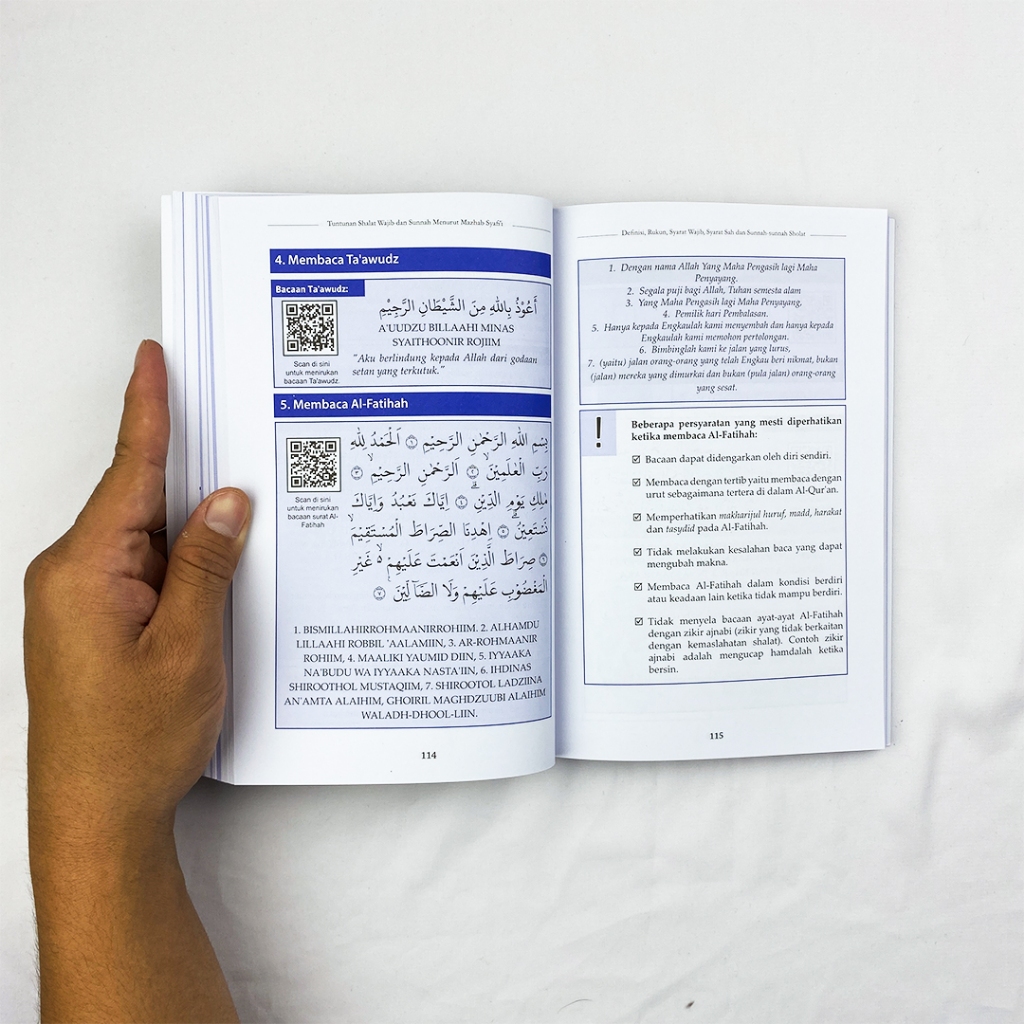 Tuntunan Shalat Wajib dan Sunnah Menurut Mazhab Syafi'i
4. Membaca Ta'awudz
Bacaan Ta'awudz:
أَعُوْذُ بِاللهِ مِنَ الشَّيْطَانِ الرَّجِيْمِ
A'UUDZU BILLAAHI MINAS
SYAITHOONIR ROJIIM
"Aku berlindung kepada Allah dari godaan
setan yang terkutuk."
Scan di sini
untuk menirukan
bacaan Ta'awudz.
5. Membaca Al-Fatihah
Scan di sini
untuk menirukan
bacaan surat Al-
Fatihah
بِسْمِ اللهِ الرَّحْمٰنِ الرَّحِيْمِ ۝١ اَلْحَمْدُ لِلّٰهِ
رَبِّ الْعٰلَمِيْنَۙ ۝٢ اَلرَّحْمٰنِ الرَّحِيْمِۙ ۝٣
مٰلِكِ يَوْمِ الدِّيْنِۗ ۝٤ اِيَّاكَ نَعْبُدُ وَاِيَّاكَ
نَسْتَعِيْنُۗ ۝٥ اِهْدِنَا الصِّرَاطَ الْمُسْتَقِيْمَۙ
۝٦ صِرَاطَ الَّذِيْنَ اَنْعَمْتَ عَلَيْهِمْ ەۙ غَيْرِ
الْمَغْضُوْبِ عَلَيْهِمْ وَلَا الضَّاۤلِّيْنَ ۝٧
1. BISMILLAHIRROHMAANIRROHIIM. 2. ALHAMDU
LILLAAHI ROBBIL 'AALAMIIN, 3. AR-ROHMAANIR
ROHIIM, 4. MAALIKI YAUMID DIIN, 5. IYYAAKA
NA'BUDU WA IYYAAKA NASTA'IIN, 6. IHDINAS
SHIROOTHOL MUSTAQIIM, 7. SHIROOTOL LADZIINA
AN'AMTA ALAIHIM, GHOIRIL MAGHDZUUBI ALAIHIM
WALADH-DHOOL-LIIN.
114
Definisi, Rukun, Syarat Wajib, Syarat Sah dan Sunnah-sunnah Sholat
1. Dengan nama Allah Yang Maha Pengasih lagi Maha
Penyayang.
2. Segala puji bagi Allah, Tuhan semesta alam
3. Yang Maha Pengasih lagi Maha Penyayang,
4. Pemilik hari Pembalasan.
5. Hanya kepada Engkaulah kami menyembah dan hanya kepada
Engkaulah kami memohon pertolongan.
6. Bimbinglah kami ke jalan yang lurus,
7. (yaitu) jalan orang-orang yang telah Engkau beri nikmat, bukan
(jalan) mereka yang dimurkai dan bukan (pula jalan) orang-orang
yang sesat.
!
Beberapa persyaratan yang mesti diperhatikan
ketika membaca Al-Fatihah:
☑ Bacaan dapat didengarkan oleh diri sendiri.
☑ Membaca dengan tertib yaitu membaca dengan
urut sebagaimana tertera di dalam Al-Qur'an.
☑ Memperhatikan makharijul huruf, madd, harakat
dan tasydid pada Al-Fatihah.
☑ Tidak melakukan kesalahan baca yang dapat
mengubah makna.
☑ Membaca Al-Fatihah dalam kondisi berdiri
atau keadaan lain ketika tidak mampu berdiri.
☑ Tidak menyela bacaan ayat-ayat Al-Fatihah
dengan zikir ajnabi (zikir yang tidak berkaitan
dengan kemaslahatan shalat). Contoh zikir
ajnabi adalah mengucap hamdalah ketika
bersin.
115